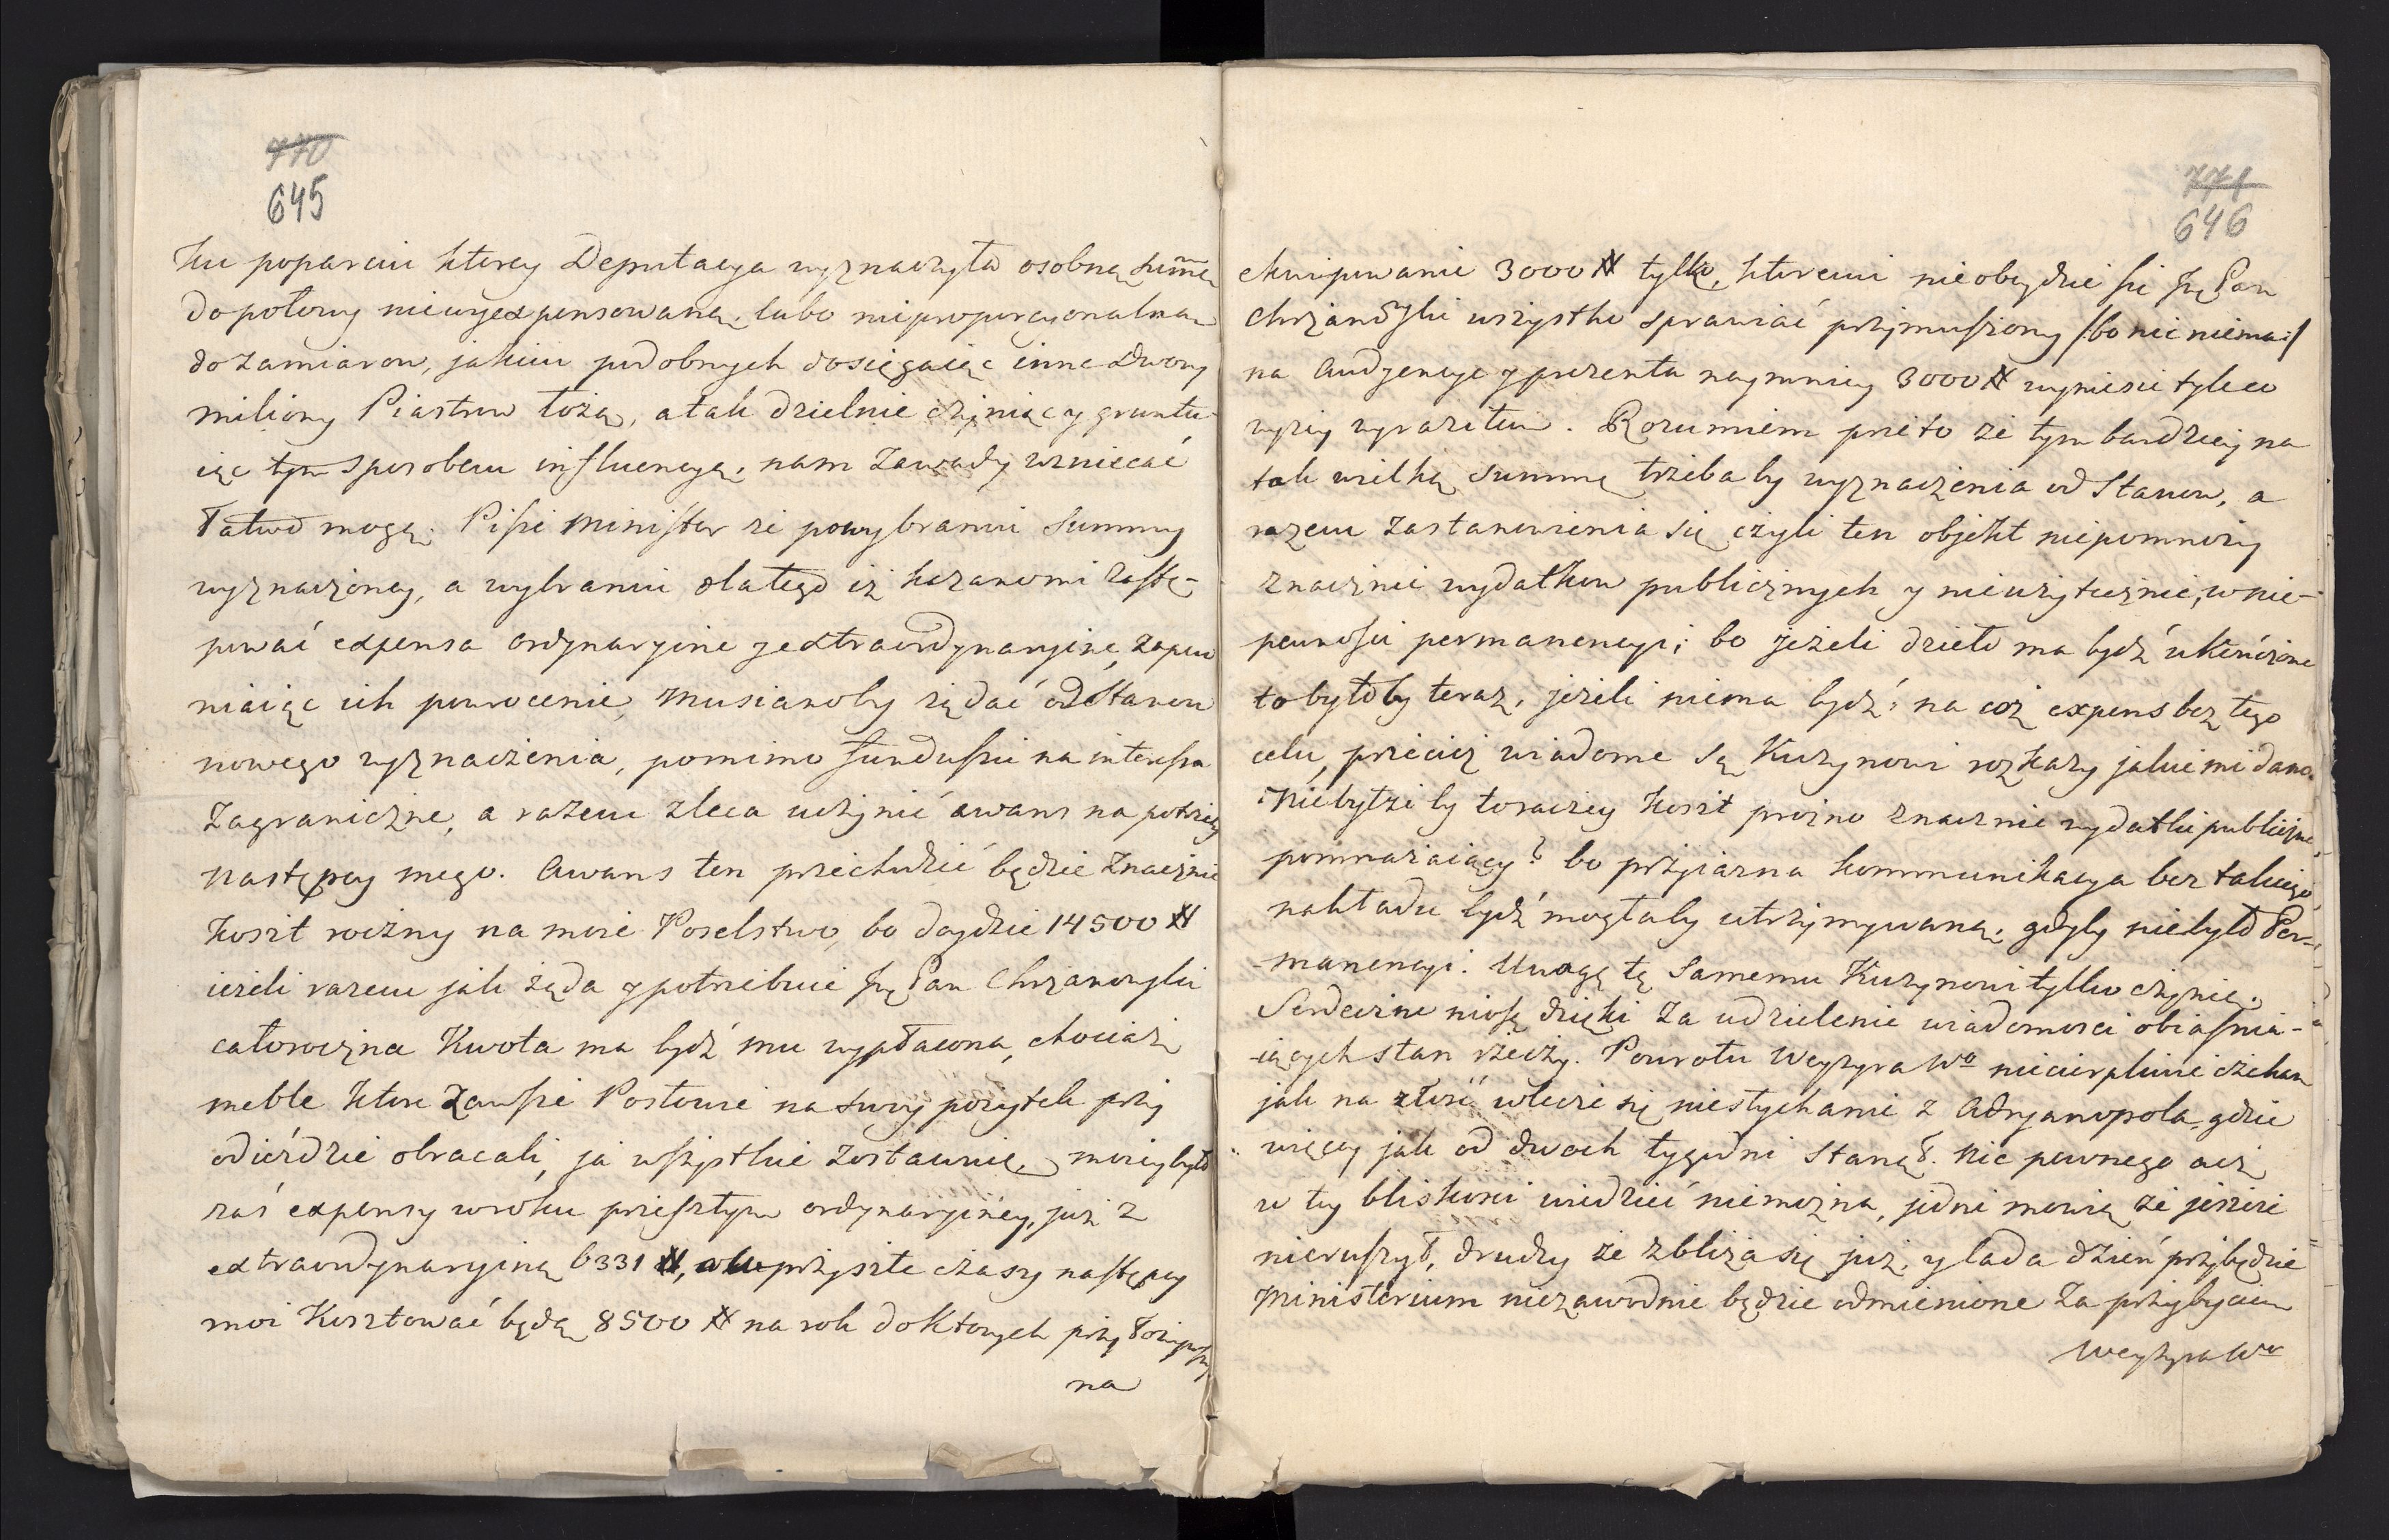 770
645
ku poparciu ktorey Deputacya wyznaczyła osobną sum̄ę
do połowy niewyexpensowaną, lubo nieproporcyonalną
do zamiarow, jakim podobnych dosięgaiąc inne Dwory
miliony Piastrow łożą, a tak dzielnie czyniąc y gruntu-
iąc tym sposobem influencyą, nam zawady wzniecać
łatwo mogą. Pisze Minister że po wybraniu summy
wyznaczoney, a wybraniu dlatego iż kazano mi zastę-
pować expensa ordynaryine y extraordynaryine, zapew
niaiąc ich powrocenie, musianoby żądać od Stanow
nowego wyznaczenia, pomimo funduszu na interessa
zagraniczne, a razem zleca uczynić awans na potrzeby
następcy mego. Awans ten przechodzić będzie znacznie
koszt roczny na moie Poselstwo, bo doydzie 14500 #
ieżeli razem jak żąda y potrzebuie JP Pan Chrzanowski
całoroczna kwota ma bydź mu wypłacona, chociaż
meble ktore zawsze Posłowie na swoy pożytek przy
odieździe obracali, ja wszystkie zostawuię, moiey było
zaś expensy w roku przeszłym ordynaryiney, już z
extraordynaryiną 6331 #, przyszłe czasy następcy
moi kosztować będą 8500 # na rok do ktorych przyłożywszy
na
771
646
ekwipowanie 3000 # tylko, ktoremi nie obeydzie się JP Pan
Chrzanowski wszystko sprawiać przymuszony /:bo nic niema:/
na Audyencye y prezenta naymniey 3000 # wyniesie tyle co
wyżey wyraziłem. Rozumiem przeto że tym bardziey na
tak wielką summę trzebaby wyznaczenia od Stanow, a
razem zastanowienia się czyli ten objekt niepomnoży
znacznie wydatkow publicznych y nieużytecznie, w nie-
pewności permanencyi; bo jeżeli dzieło ma bydź ukończone
to byłoby teraz, jeżeli niema bydź, na coż expens bez tego
celu, przecież wiadome są Kuzynowi rozkazy jakie mi dano.
Niebyłże by to raczey koszt prożno znacznie wydatki publiczne
pomnażaiący? bo przyiazna kommunikacya bez takiego
nakładu bydź mogłaby utrzymywaną, gdyby niebyło Per-
-manencyi. Uwagę tę samemu Kuzynowi tylko czynię.
Serdeczne niosę dzięki za udzielenie wiadomości obiaśnia-
-iących stan rzeczy. Powrotu Wezyra Wo niecierpliwie czekam
jak na złość wlecze się niesłychanie z Adryanopola, gdzie
więcey jak od dwoch tygodni stanął. Nic pewnego acz
w tey bliskości wiedzieć niemożna, jedni mowią że jeszcze
nieruszył, drudzy że zbliża się już, y lada dzień przybędzie
Ministerium niezawodnie będzie odmienione za przybyciem
Wezyra Wo